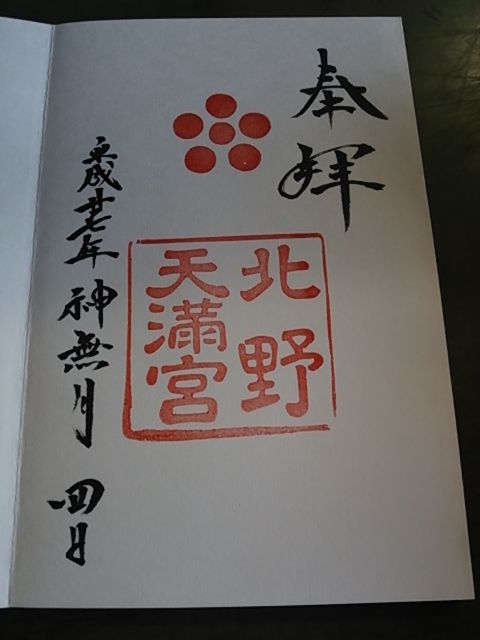 奉拝
北野
天満宮
平成廿七年神無月四日